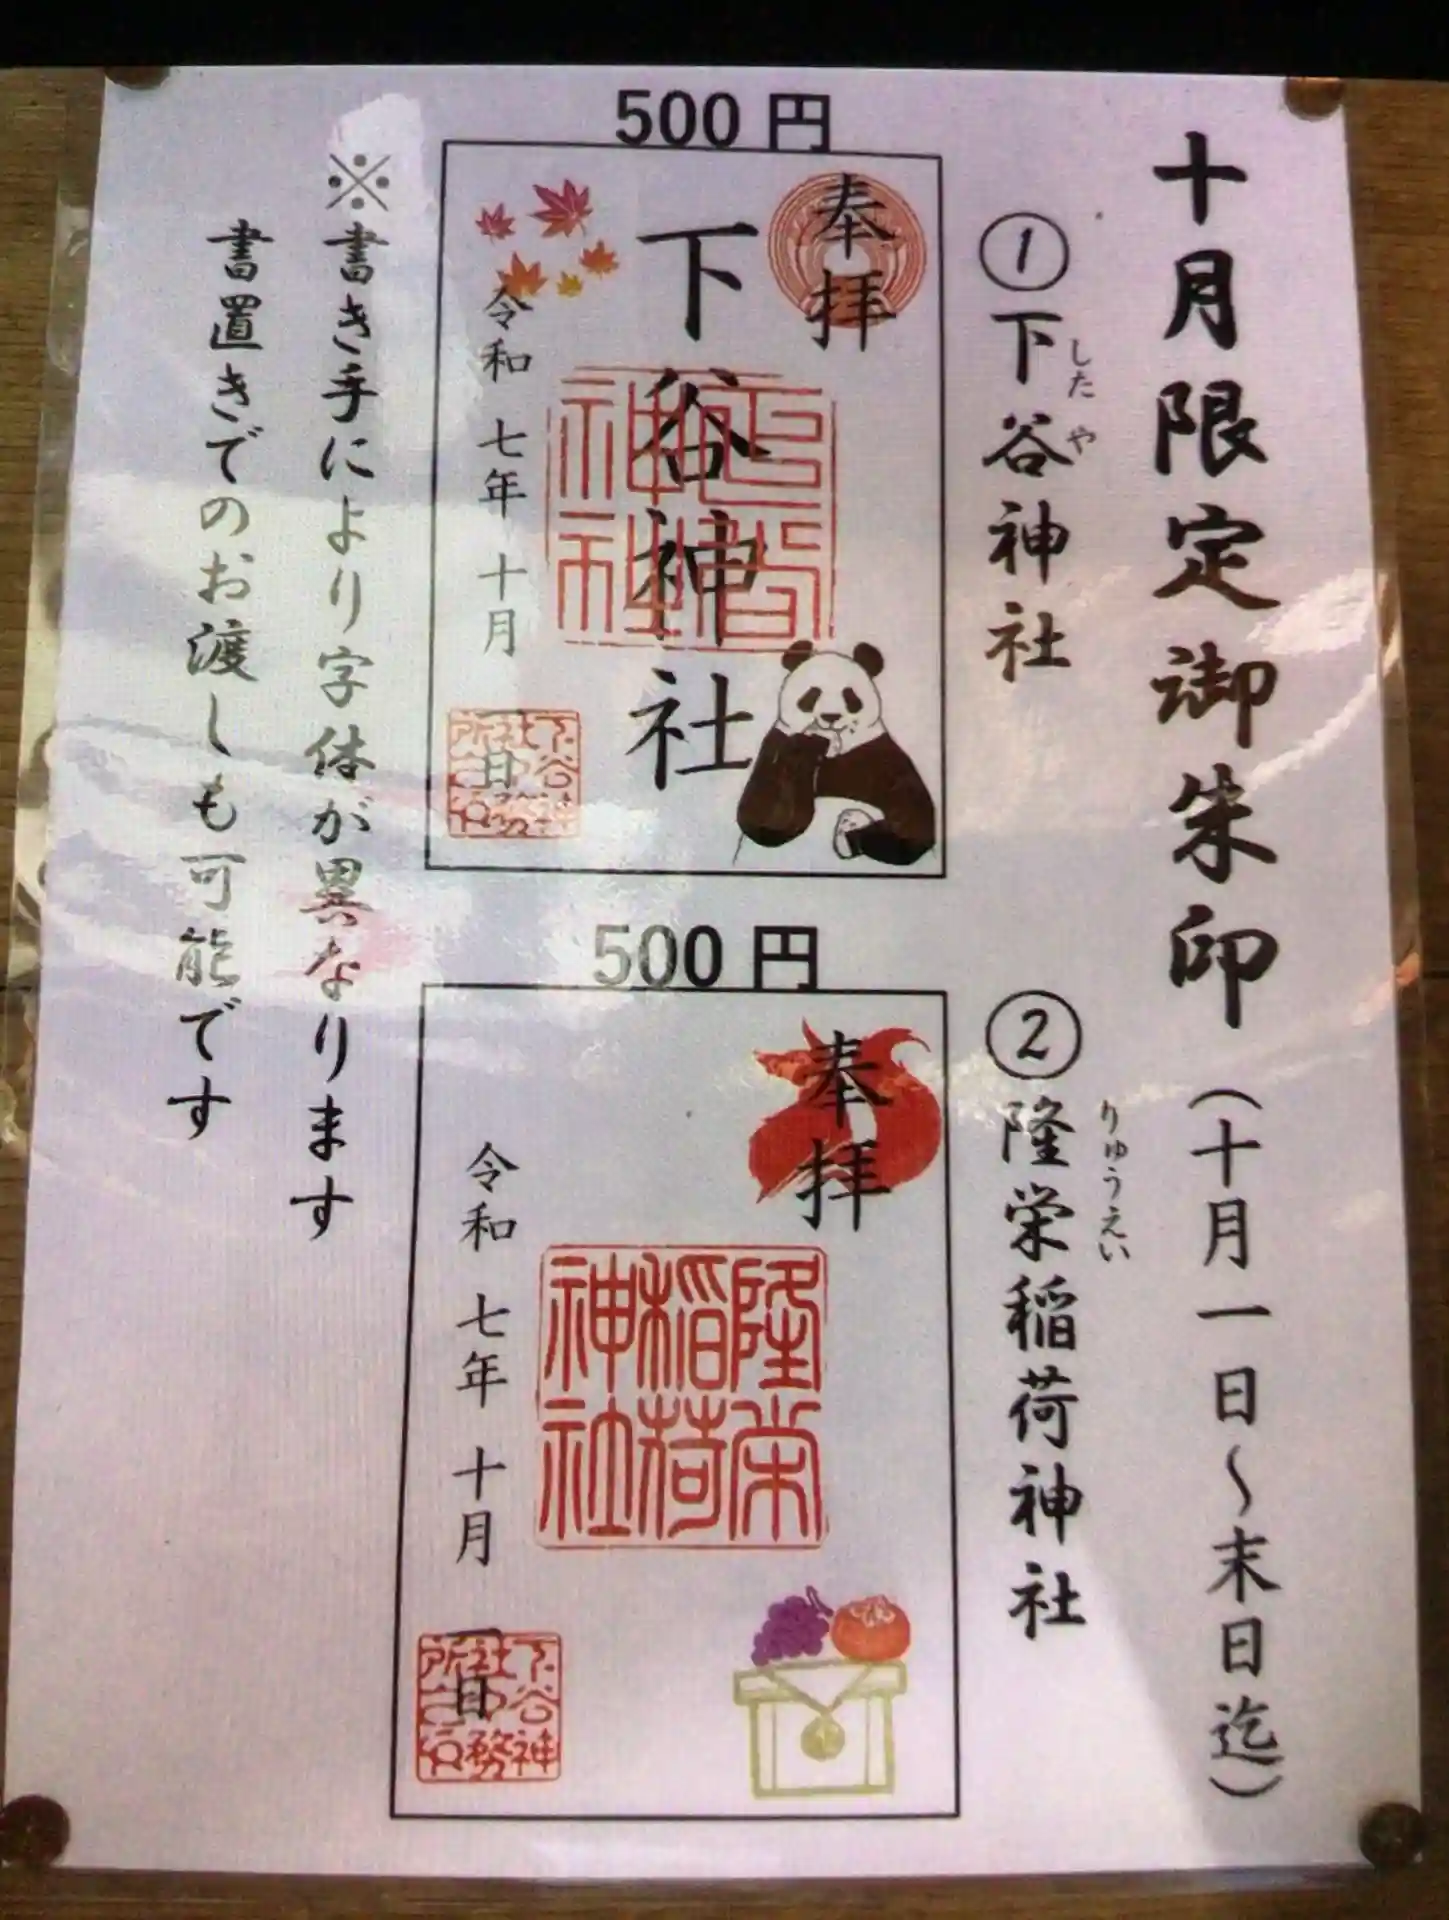 十月限定御朱印（十月一日～末日迄）
①下谷神社
したや
500円
奉拝
下谷神社
令和 七年 十月
一日
②隆栄稲荷神社
りゅうえい
500円
奉拝
隆栄
稲荷
神社
令和 七年 十月
一日
※書き手により字体が異なります
書置きでのお渡しも可能です